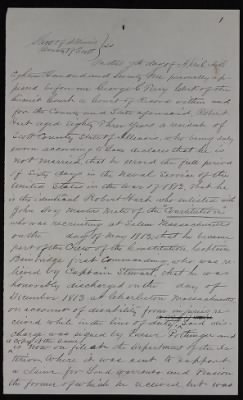 1
State of Illinois } ss
County of Scott }
On this 7th day of April A.D.
Eighteen thousand and Seventy One personally ap
peared before me George C. Clerk of the
Circuit Court a Court of Record within and
for the County and State aforesaid, Robert
aged Eighty Three Years a resident of
Scott County State of Illinois, who being duly
sworn according to Law declares that he is
not married, that he served the full period
of Sixty days in the Naval Service of the
United States in the War of 1812, that he
is the identical Robert who enlisted with
John Masters Mate of the Constitution
who was recruiting at Salem Massachusetts
on the day of May 1813, that he became
part of the Crew of the Constitution Captain
Bainbridge first Commanding who was re
lieved by Captain Stewart, that he was
honorably discharged on the day of
December 1813 at Charleston Massachusetts
on account of disability from
ceived while in the line of duty, Said dis
charge was signed by and
is now on file at the department of the In
terior where it was sent to support
a claim for Land warrants and Pension
the former of which he received but was